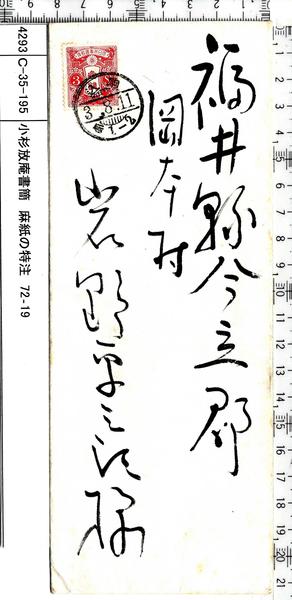 福井縣今立郡
岡本村
岩野平三郎様
4293 C-35-195 小杉放庵書簡 麻紙の特注 72-19
3.8.11